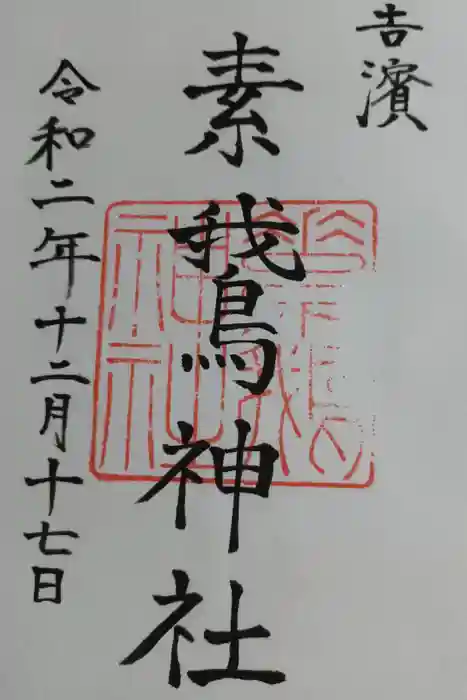 吉濱
素我鳥神社
令和二年十二月十七日